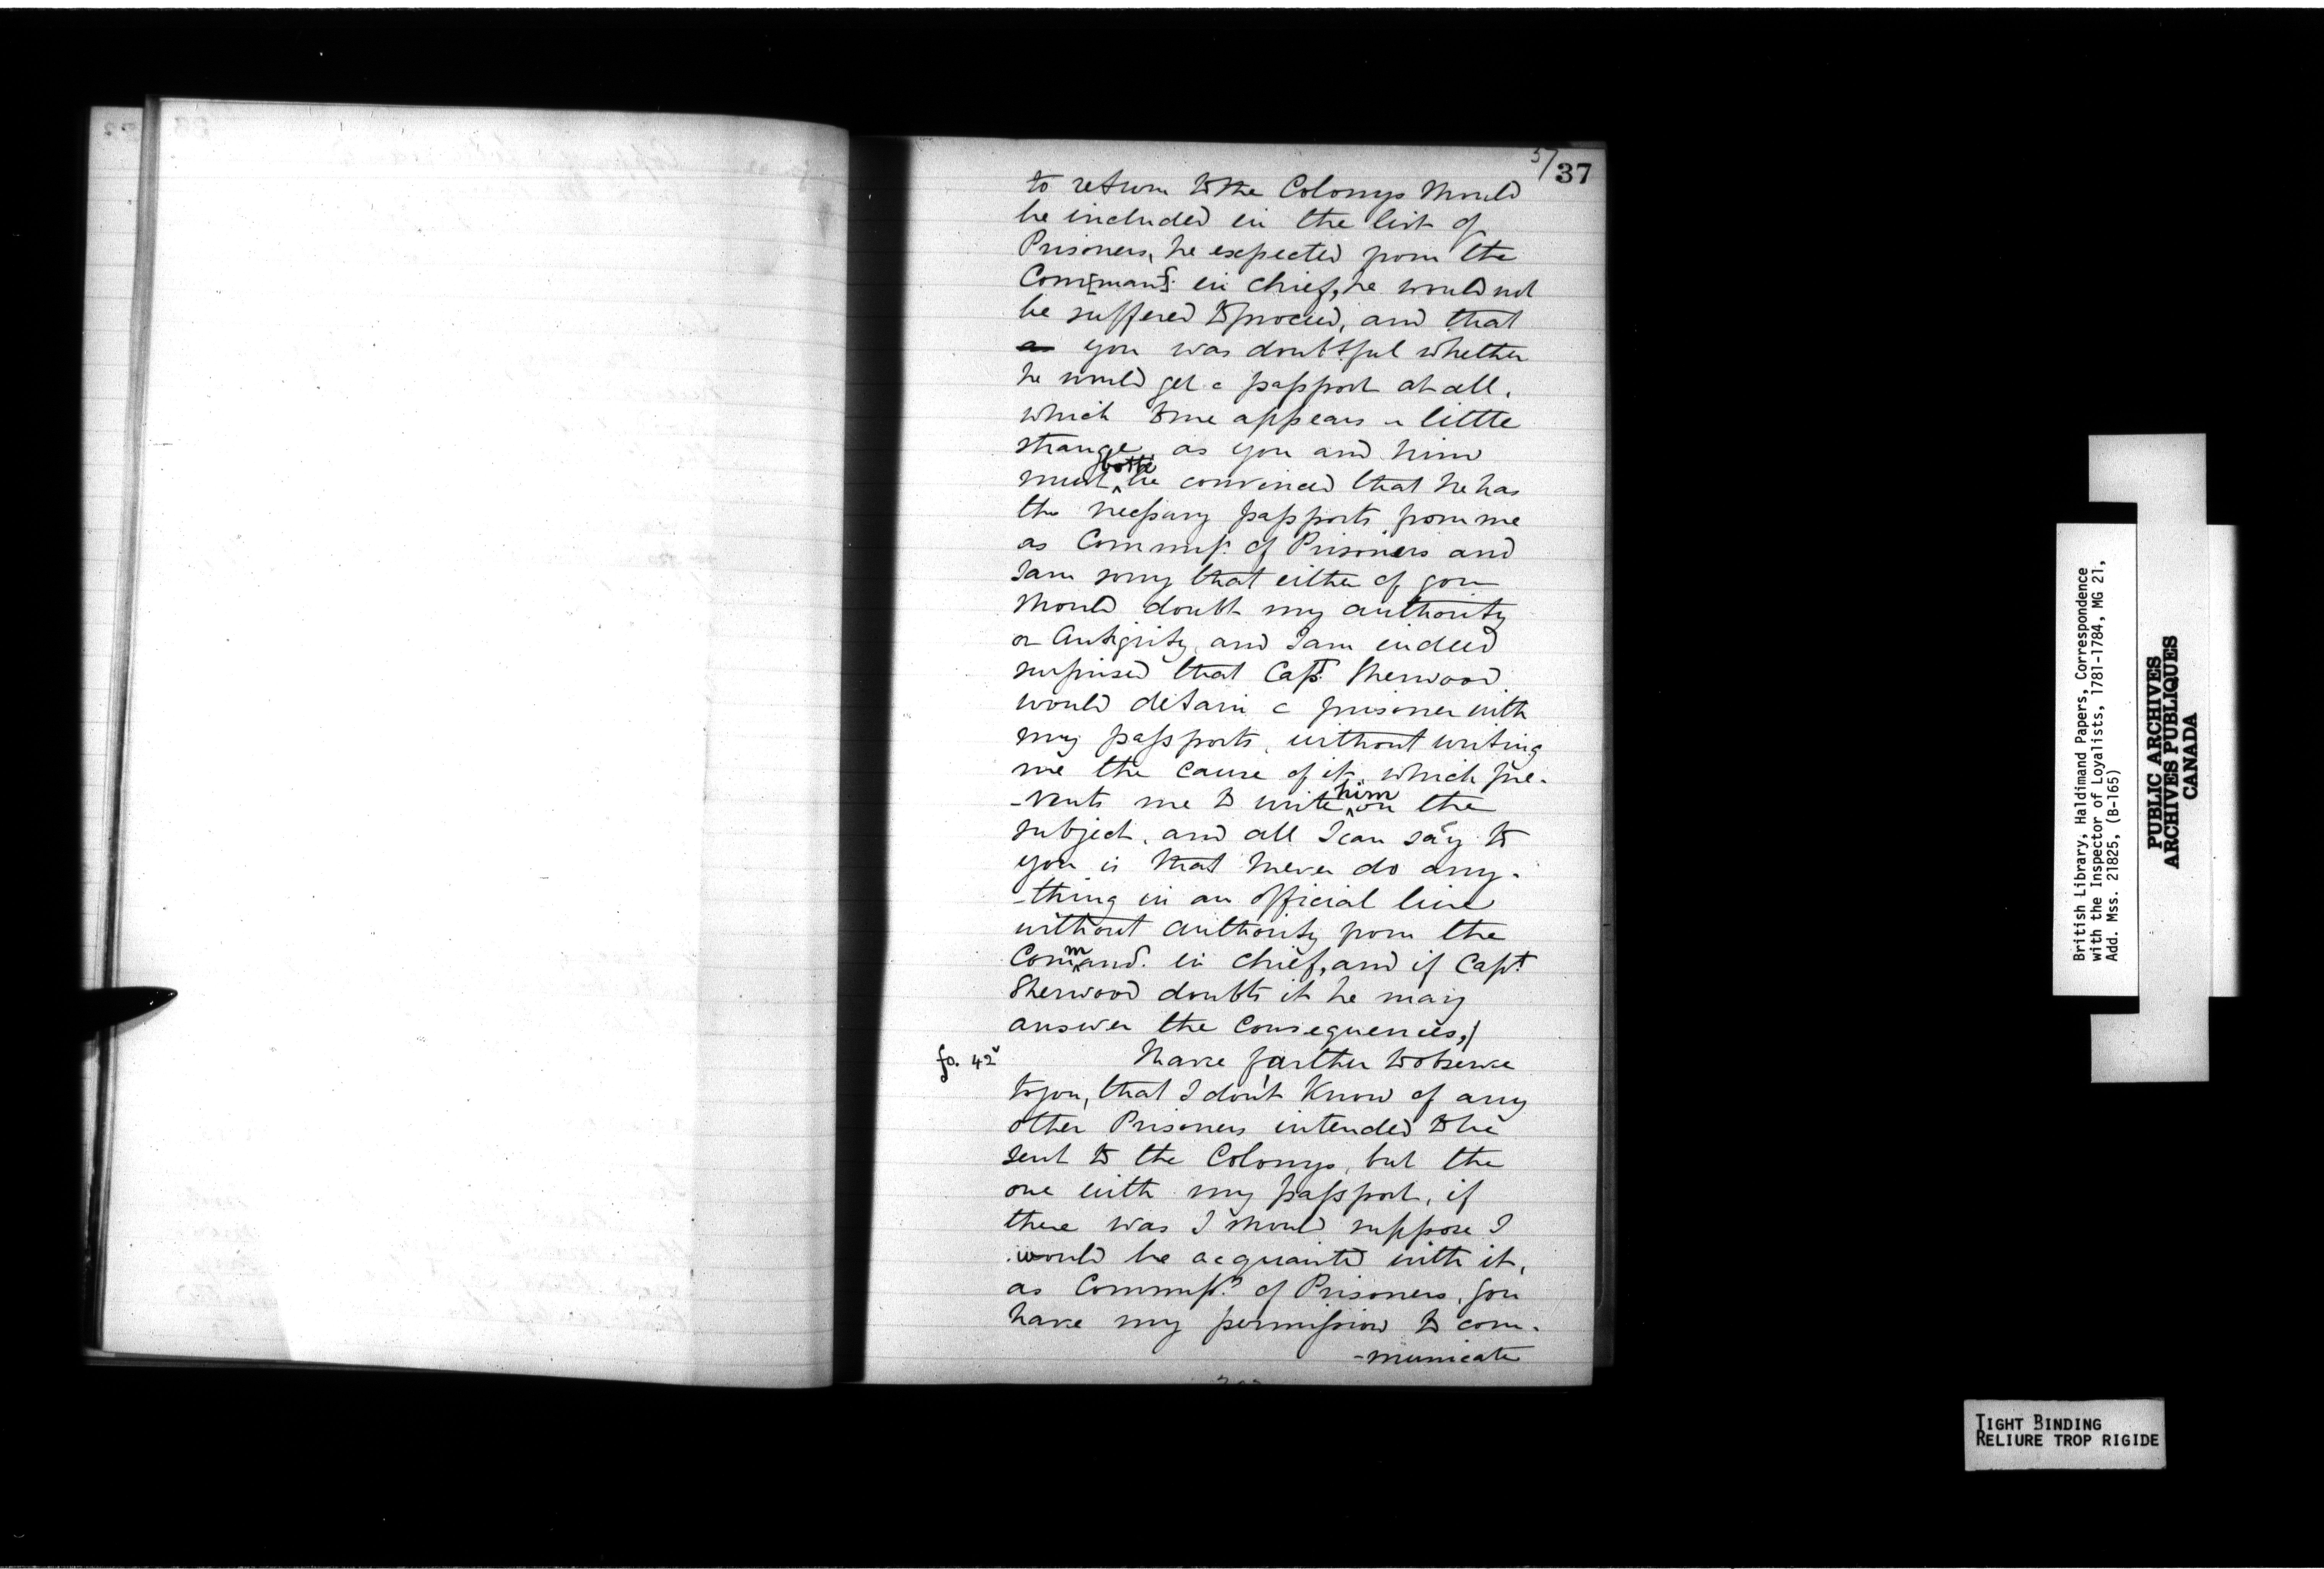 37
to return to the Colonys should
be included in the list of
Prisoners, he expected from the
Com[man]d. in chief, he would not
be suffered to proceed, and that
as you was doubtful whether
he would get a passport at all.
which to me appears a little
strange, as you and him
must both be convinced that he has
the necessary passports from me
as Commiss. of Prisoners and
I am sorry that either of you
should doubt my authority
or Antigrity, and I am indeed
surprised that Capt. Sherwood
would detain a prisoner with
my passports, without writing
me the cause of it, which pre-
-vents me to write him on the
subject, and all I can say to
you is that I never do any-
-thing in an official line
without authority from the
Command. in chief, and if Capt.
Sherwood doubts it he may
answer the Consequences,/
fo. 42v
have farther to observe
to you, that I don't know of any
other Prisoners intended to be
sent to the Colonys, but the
one with my passport, if
there was I should suppose I
would be acquainted with it,
as Commissy. of Prisoners, you
have my permission to com-
-municate
British Library, Haldimand Papers, Correspondence
with the Inspector of Loyalists, 1781-1784, MG 21,
Add. Mss. 21825, (B-165)
PUBLIC ARCHIVES
ARCHIVES PUBLIQUES
CANADA
TIGHT BINDING
RELIURE TROP RIGIDE